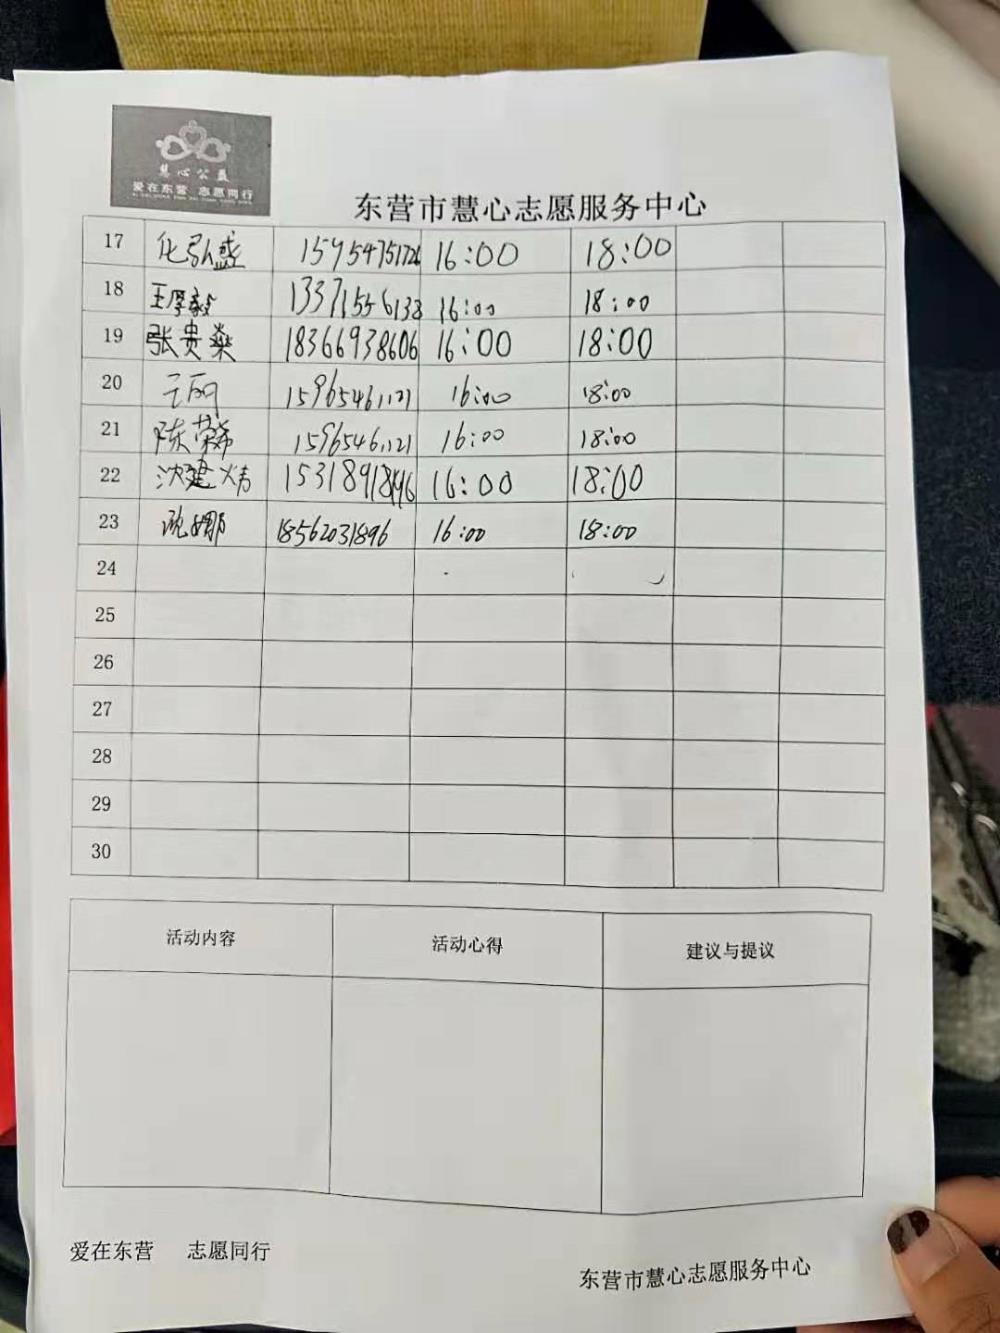 慧心公益
爱在东营 志愿同行
东营市慧心志愿服务中心
17 化弘盛 15954751726 16:00 18:00
18 王厚毅 13371556138 16:00 18:00
19 张贵燊 18366938606 16:00 18:00
20 王丽 15965461121 16:00 18:00
21 陈荣希 15965461121 16:00 18:00
22 沈建炜 15318918196 16:00 18:00
23 18562031896 16:00 18:00
24
25
26
27
28
29
30
活动内容 活动心得 建议与提议
爱在东营 志愿同行
东营市慧心志愿服务中心